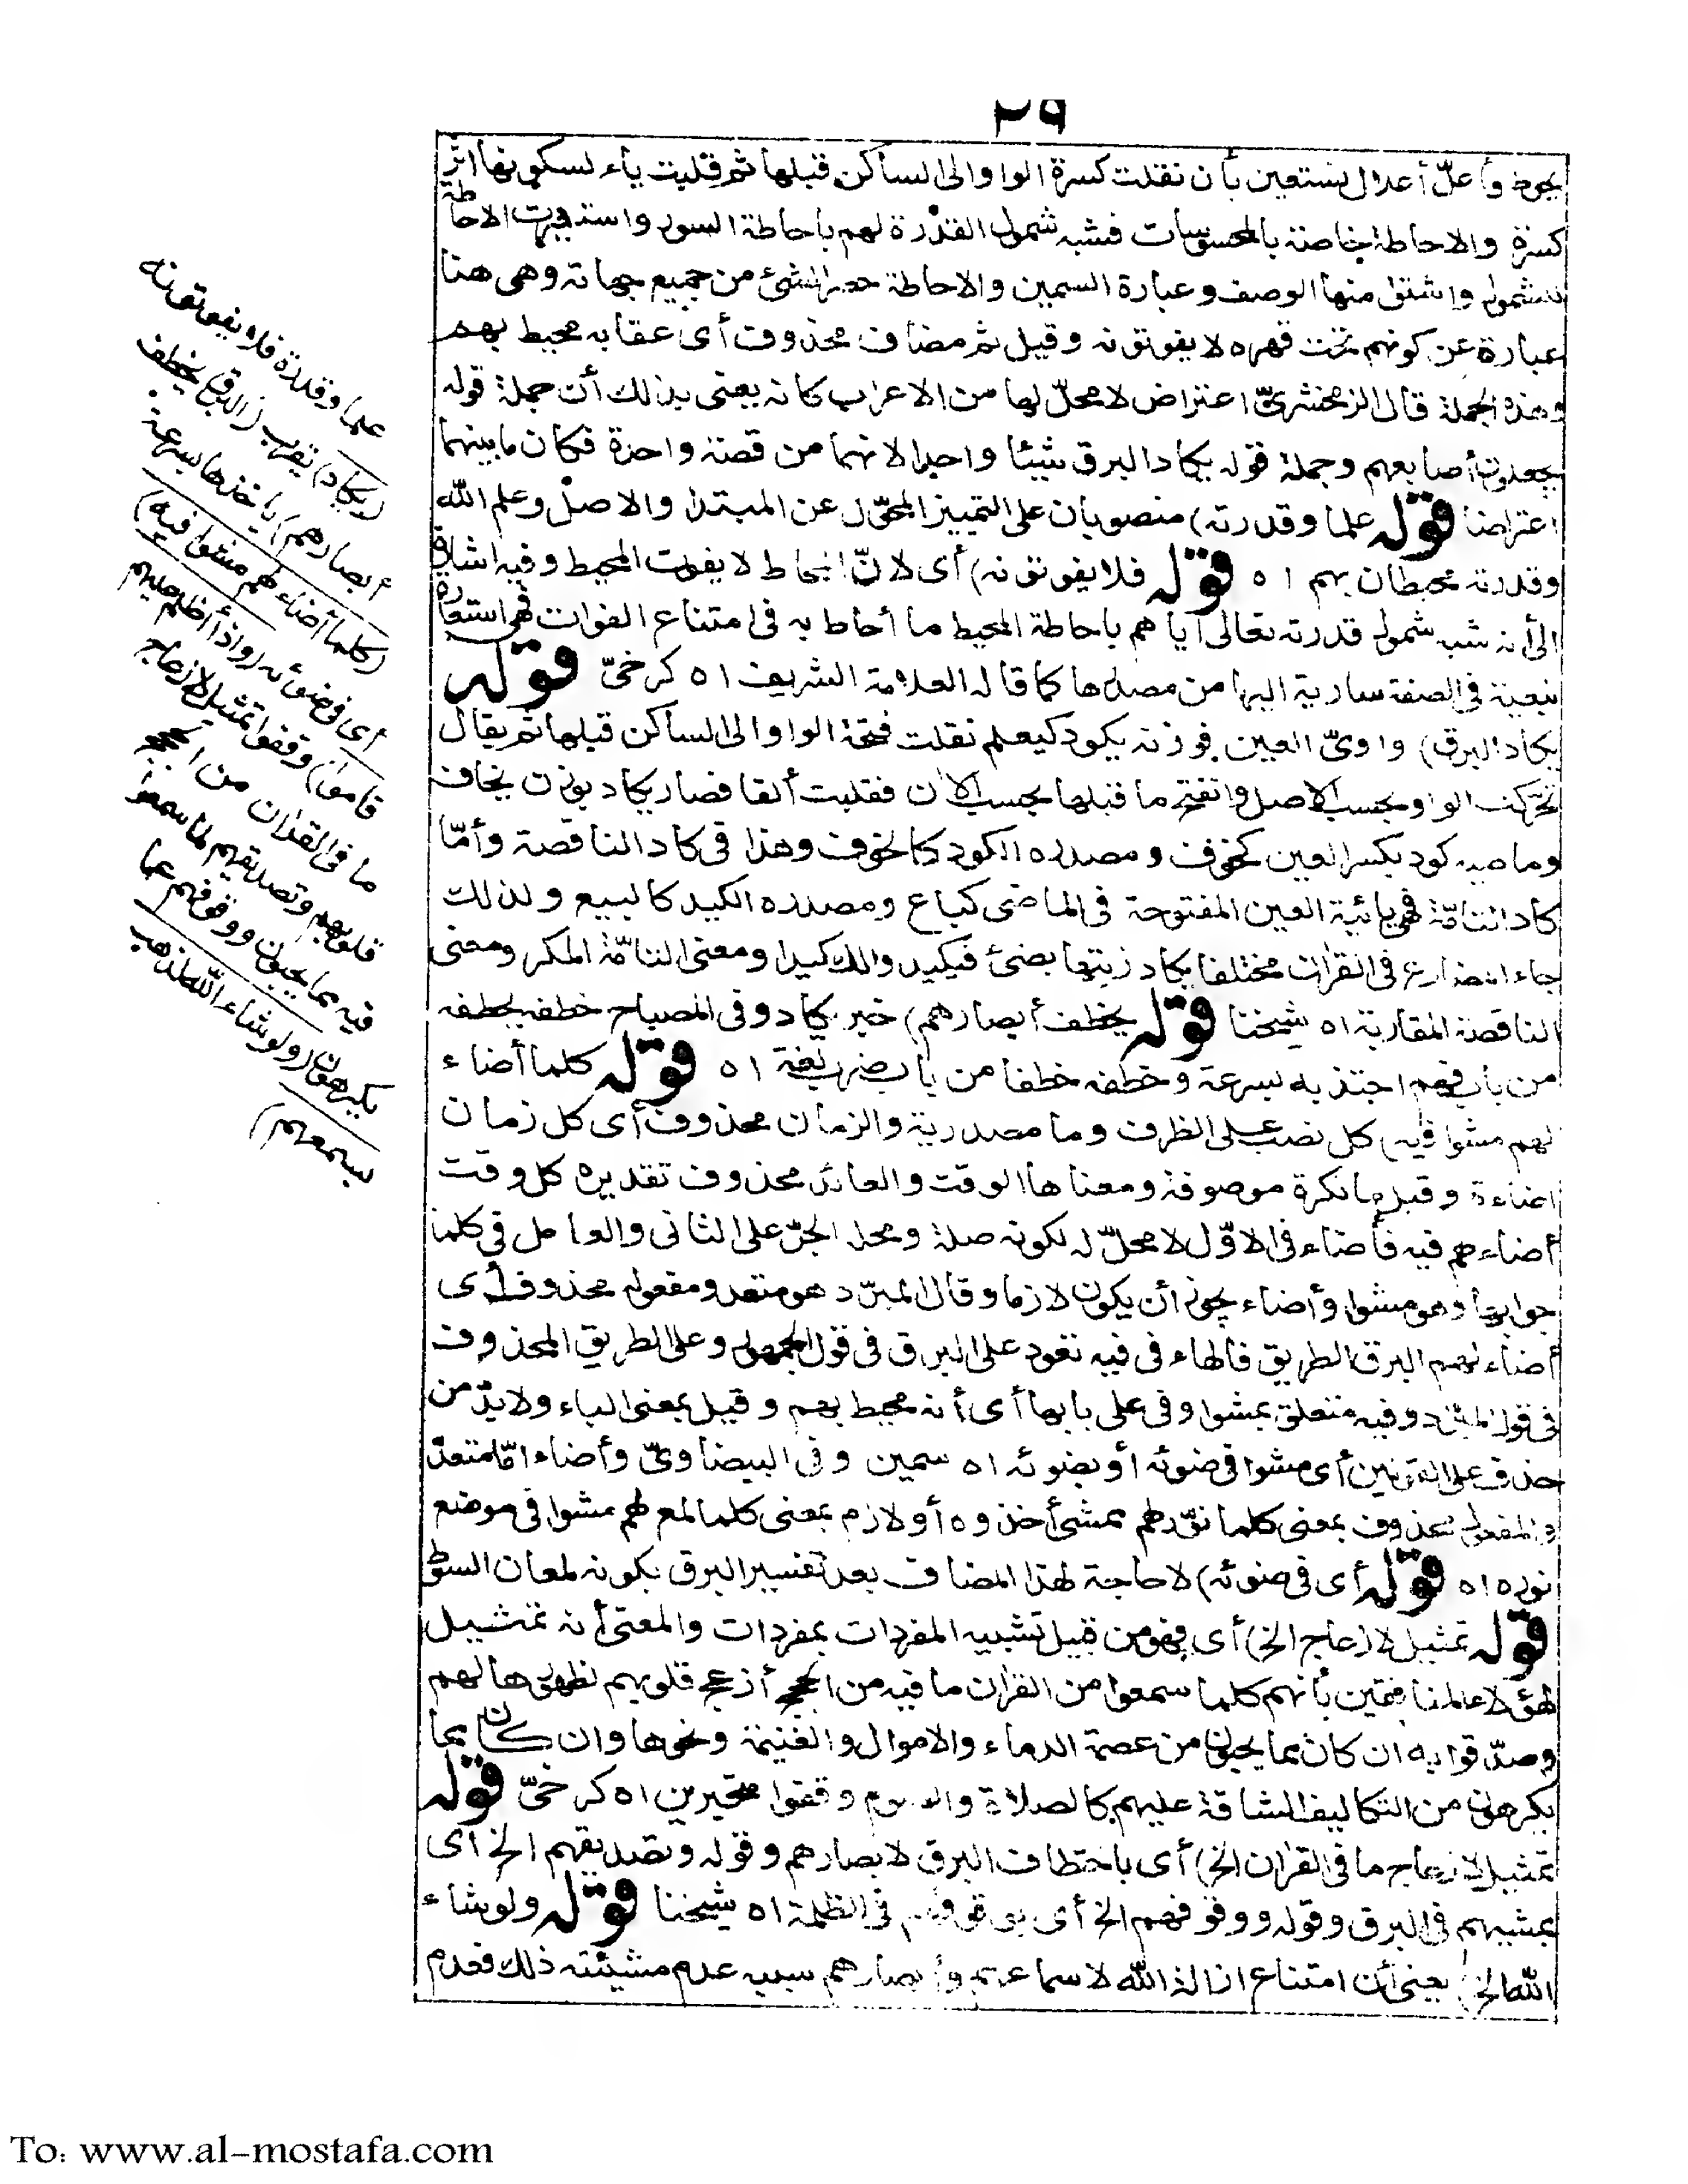 ٢٩
يحوط وأعلّ أعلال نستعين بأن نقلت كسرة الواو الى الساكن قبلها ثم قلبت ياء لسكونها اثر
كسرة والاحاطة خاصة بالمحسوسات فشبه شمول القدرة لهم باحاطة السور واستعيرت الاحاطة
للشمول واشتق منها الوصف وعبارة السمين والاحاطة حصر الشئ من جميع جهاته وهى هنا
عبارة عن كونهم تحت قهره لا يفوتونه وقيل ثم مضاف محذوف أى عقابه محيط بهم
وهذه الجملة قال الزمخشرىّ اعتراض لا محلّ لها من الاعراب كانه يعنى بذلك أن جملة قوله
يجعلون أصابعهم وجملة قوله يكاد البرق شيئا واحدا لانهما من قصة واحدة فكان ما بينهما
اعتراضا قوله علما وقدرته) منصوبان على التمييز المحوّل عن المبتدا والاصل وعلم الله
وقدرته محيطان بهم اه قوله فلا يفوتونه) أى لانّ المحاط لا يفوت المحيط وفيه اشارة
الى أنه شبه شمول قدرته تعالى اياهم باحاطة المحيط ما أحاط به فى امتناع الفوات فهى استعارة
تبعية فى الصفة سارية اليها من مصدرها كما قاله العلامة الشريف اه كرخىّ قوله
يكاد البرق) واوىّ العين فوزنه يكود كيعلم نقلت فتحة الواو الى الساكن قبلها ثم يقال
تحرّكت الواو بحسب الاصل وانفتح ما قبلها بحسب الآن فقلبت ألفا فصار يكاد بوزن يخاف
وماضيه كود بكسر العين كخوف ومصدره الكود كالخوف وهذا فى كاد الناقصة وأمّا
كاد التامّة فهى يائية العين المفتوحة فى الماضى كباع ومصدره الكيد كالبيع ولذلك
جاء المضارع فى القرآن مختلفا يكاد زيتها يضئ فيكيدوا لك كيدا ومعنى التامّة المكر ومعنى
الناقصة المقاربة اه شيخنا قوله يخطف أبصارهم) خبر يكاد وفى المصباح خطفه يخطفه
من باب فهم اجتذبه بسرعة وخطفه خطفا من باب ضرب لغة اه قوله كلما أضاء
لهم مشوا فيه) كل نصب على الظرف وما مصدرية والزمان محذوف أى كل زمان
اضاءة وقيل ما نكرة موصوفة ومعناها الوقت والعائد محذوف تقديره كل وقت
أضاء لهم فيه فأضاء فى الاوّل لا محلّ له لكونه صلة ومحله الجرّ على الثانى والعامل فى كلما
جوابها وهو مشوا وأضاء يجوز أن يكون لازما وقال المبرّد هو متعد ومفعوله محذوف أى
أضاء لهم البرق الطريق فالهاء فى فيه تعود على البرق فى قول الجمهور وعلى الطريق المحذوف
فى قول المبرّد وفيه متعلق بمشوا وفى على بابها أى أنه محيط بهم وقيل بمعنى الباء ولا بدّ من
حذف على القولين أى مشوا فى ضوئه أو بضوئه اه سمين وفى البيضاوىّ وأضاء امّا متعدّ
والمفعول محذوف بمعنى كلما نوّر لهم ممشى أخذوه أو لازم بمعنى كلما لمع لهم مشوا فى موضع
نوره اه قوله أى فى ضوئه) لا حاجة لهذا المضاف بعد تفسير البرق بكونه لمعان السوط
قوله تمثيل لازعاج الخ) أى فهو من قبيل تشبيه المفردات بمفردات والمعنى أنه تمثيل
لهؤلاء المنافقين بأنهم كلما سمعوا من القرآن ما فيه من الحجج أزعج قلوبهم لظهورها لهم
وصدّقوا به ان كان مما يحبون من عصمة الدماء والاموال والغنيمة ونحوها وان كان مما
يكرهون من التكاليف الشاقة عليهم كالصلاة والصوم وقفوا متحيرين اه كرخىّ قوله
تمثيل لازعاج ما فى القرآن الخ) أى باختطاف البرق لابصارهم وقوله وتصديقهم الخ أى
بمشيهم فى البرق وقوله ووقوفهم الخ أى بوقوفهم فى الظلمة اه شيخنا قوله ولو شاء
الله الخ) يعنى أن امتناع ازالة الله لاسماعهم وأبصارهم سبب عدم مشيئته ذلك فعدم
علما وقدرة فلا يفوتونه
(يكاد) يقرب (البرق يخطف
أبصارهم) يأخذها بسرعة
(كلما أضاء لهم مشوا فيه)
أى فى ضوئه (واذا أظلم عليهم
قاموا) وقفوا تمثيل لازعاج
ما فى القرآن من الحجج
قلوبهم وتصديقهم لما سمعوا
فيه مما يحبون ووقوفهم عما
يكرهون (ولو شاء الله لذهب
بسمعهم)
To: www.al-mostafa.com